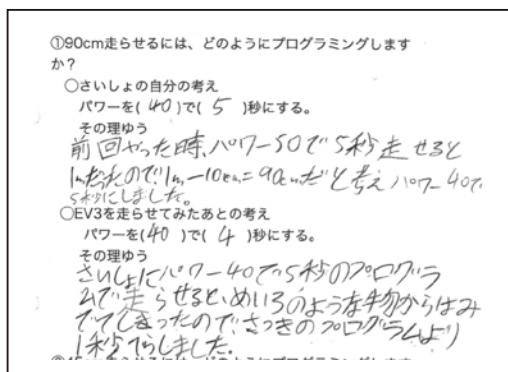 ①90cm走らせるには、どのようにプログラミングします
か？
○さいしょの自分の考え
パワーを( 40 )で( 5 )秒にする。
その理ゆう
前回やった時、パワー50で5秒走せると
1mだったので1m-10cm=90cmだと考えパワー40で
5秒にしました。
○EV3を走らせてみたあとの考え
パワーを(40 )で( 4 )秒にする。
その理ゆう
さいしょにパワー40で5秒のプログラ
ムで走らせると、めいろのような物からはみ
でてしまったのでさっきのプログラムより
1秒へらしました。